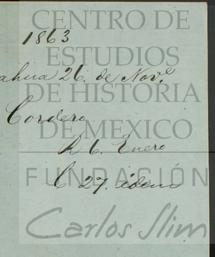 CENTRO DE
1863
ESTUDIOS
ahua 26. de Nov.e
DE HISTORIA
Cordero
DE MEXICO
R 6. Enero
FUNDACIÓN
C 27 idem
Carlos Slim